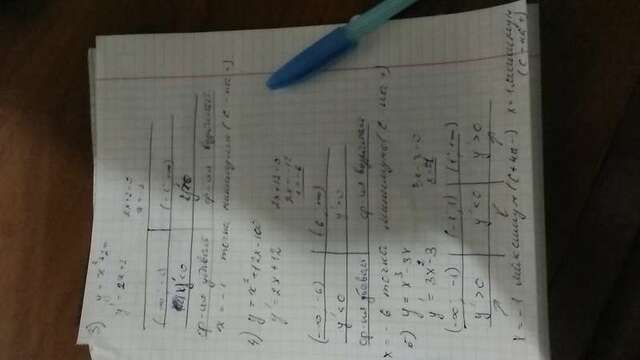 3) y = x² + 2x
y' = 2x + 2
2x + 2 = 0
x = -1
y' < 0
y' > 0
ф-ция убывает
ф-ция возрастает
x = -1 точка минимума (с - на +)
4) y = x² + 12x - 100
y' = 2x + 12
2x + 12 = 0
2x = -12
x = -6
(-∞ -6) (6 ∞)
y' < 0 y' > 0
ф-ция убывает ф-ция возрастает
x = -6 точка минимума (с - на +)
5) y = x³ - 3x
y' = 3x² - 3
3x - 3 = 0
(-∞ -1) (-1, 1) (1 ∞)
y' > 0 y' < 0 y' > 0
x = -1 максимум (с + на -) x = 1 минимум
(с - на +)